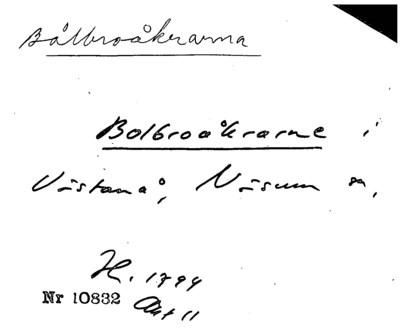 Bålbroåkrarna
Bolbroåkrarne i
Vistanå, Näsum sn,
H. 1794
Nr 10832 Akt 11